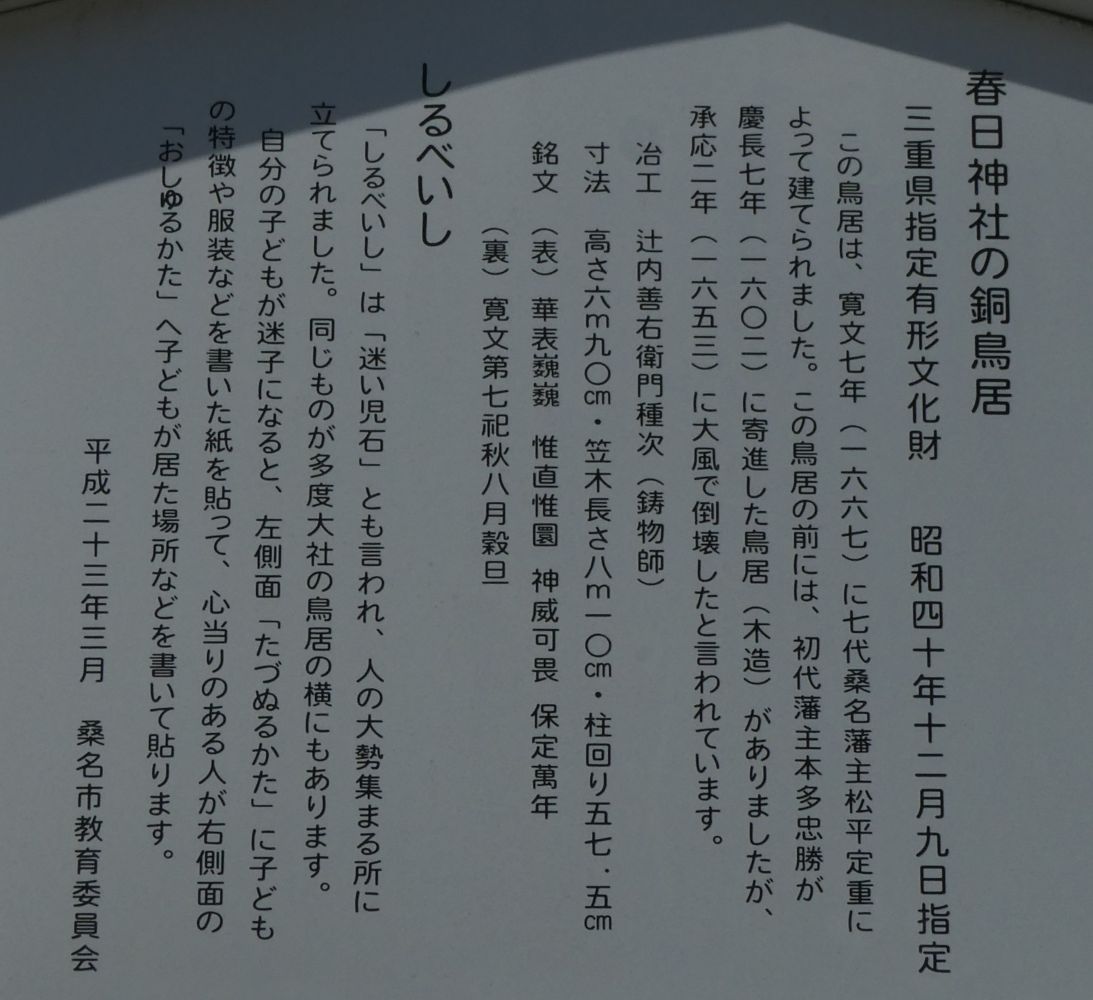 春日神社の銅鳥居
三重県指定有形文化財　昭和四十年十二月九日指定
この鳥居は、寛文七年（一六六七）に七代桑名藩主松平定重に
よって建てられました。この鳥居の前には、初代藩主本多忠勝が
慶長七年（一六〇二）に寄進した鳥居（木造）がありましたが、
承応二年（一六五三）に大風で倒壊したと言われています。
冶工　辻内善右衛門種次（鋳物師）
寸法　高さ六ｍ九〇㎝・笠木長さ八ｍ一〇㎝・柱回り五七．五㎝
銘文　（表）華表巍巍　惟直惟圜　神威可畏　保定萬年
（裏）寛文第七祀秋八月穀旦
しるべいし
「しるべいし」は「迷い児石」とも言われ、人の大勢集まる所に
立てられました。同じものが多度大社の鳥居の横にもあります。
自分の子どもが迷子になると、左側面「たづぬるかた」に子ども
の特徴や服装などを書いた紙を貼って、心当りのある人が右側面の
「おしゆるかた」へ子どもが居た場所などを書いて貼ります。
平成二十三年三月　桑名市教育委員会